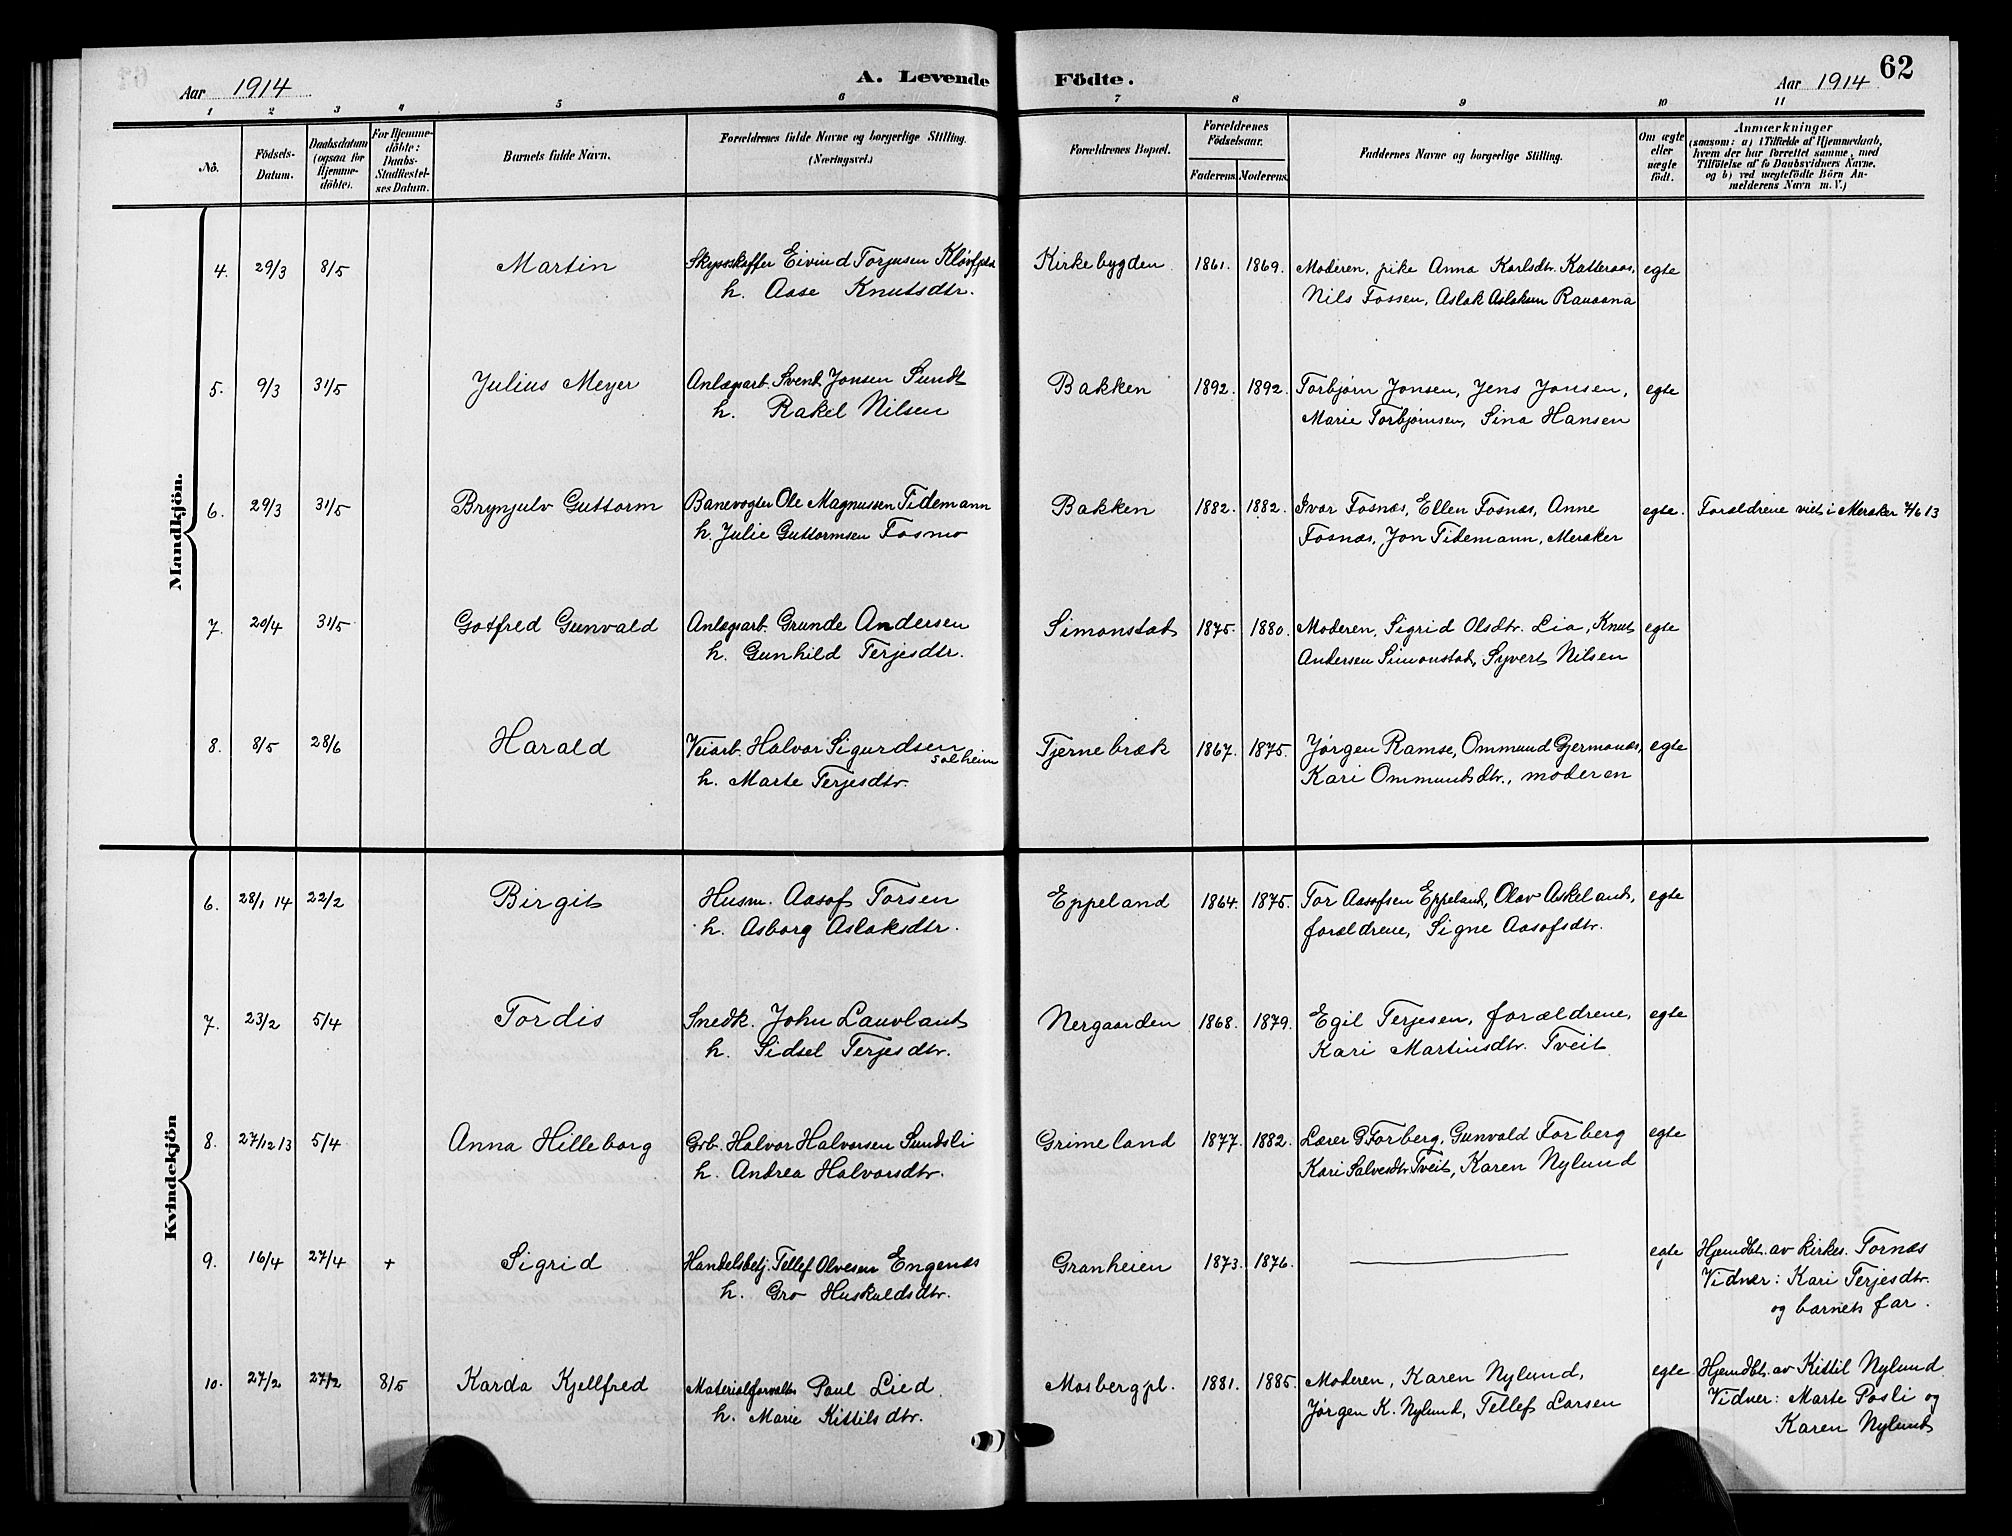 Aar 1914 A. Levende Födte. Aar 1914 62
1 2 3 4 5 6 7 8 9 10 11
No. Födsels-Datum. Daabsdatum (ogsaa for Hjemmedöbte). For Hjemmedöbte: Daabs-Stadfæstelses Datum. Barnets fulde Navn. Forældrenes fulde Navne og borgerlige Stilling. (Næringsvei.) Forældrenes Bopæl. Forældrenes Födselsaar. Faderens. Moderens. Faddernes Navne og borgerlige Stilling. Om ægte eller uægte födt. Anmærkninger (saasom: a) i Tilfælde af Hjemmedaab, hvem der har forrettet samme, med Tilföielse af to Daabsvidners Navne, og b) ved uægtefödte Börn Anmelderens Navn m. V.)
Mandkjön.
4. 29/3 8/5 Martin Skysskaffer Eivind Torjusen Kløvfjeld Kirkebygden 1861. 1869. Moderen, pike Anna Karlsdtr. Katteraas, egte
h. Aase Knutsdtr. Nils Fossen, Aslak Aslaksen Rauaana
5. 9/3 31/5 Julius Meyer Anlægsarb. Svend Jonsen Sundt Bakken 1892. 1892. Torbjørn Jonsen, Jens Jonsen, egte
h. Rakel Nilsen Marie Torbjørnsen, Sina Hansen
6. 29/3 31/5 Brynjulv Guttorm Banevogter Ole Magnussen Tidemann Bakken 1882. 1882. Ivar Fosnæs, Ellen Fosnæs, Anne egte. Forældrene viet i Meraker 7/6 13
h. Julie Guttormsen Fosmo Fosnæs, Jon Tidemann, Meraker
7. 20/4 31/5 Gotfred Gunvald Anlægsarb. Grunde Andersen Simonstad 1875. 1880. Moderen, Sigrid Olsdtr. Lia, Knut egte
h. Gunhild Terjesdtr. Andersen Simonstad, Syvert Nilsen
8. 8/5 28/6 Harald Veiarb. Halvor Sigurdsen Solheim Tjernebræk 1867. 1875. Jørgen Ramse, Ommund Gjermonæs, egte
h. Marte Terjesdtr. Kari Ommundsdtr., moderen
Kvindekjön
6. 28/1 14 22/2 Birgit Husm. Aasof Torsen Eppeland 1864. 1875. Tor Aasofsen Eppeland, Olav Askeland, egte
h. Asborg Aslaksdtr. forældrene, Signe Aasofsdtr.
7. 23/2 5/4 Tordis Snedk. John Lauvland Nergaarden 1868. 1879. Egil Terjesen, forældrene, egte
h. Sidsel Terjesdtr. Kari Martinsdtr. Tveit
8. 27/12 13 5/4 Anna Hilleborg Grb. Halvor Halvorsen Sundsli Grimeland 1877. 1882. Lærer G Forberg, Gunvald Forberg egte
h. Andrea Halvorsdtr. Kari Salvesdtr. Tveit, Karen Nylund
9. 16/4 27/4 + Sigrid Handelsbetj. Tellef Olvesen Engenæs Granheien 1873. 1876. egte Hjemdbt. av kirkes. Tornæs
h. Gro Huskuldsdtr. Vidner: Kari Terjesdtr.
og barnets far.
10. 27/2 27/2 8/5 Karda Kjellfred Materialforvalter Paul Lied. Mosberg pl. 1881. 1885. Moderen, Karen Nylund, egte Hjemdbt. av Kittil Nylund
h. Marie Kittilsdtr. Jørgen K. Nylund, Tellef Larsen Vidner: Marte Posli og
Karen Nylund